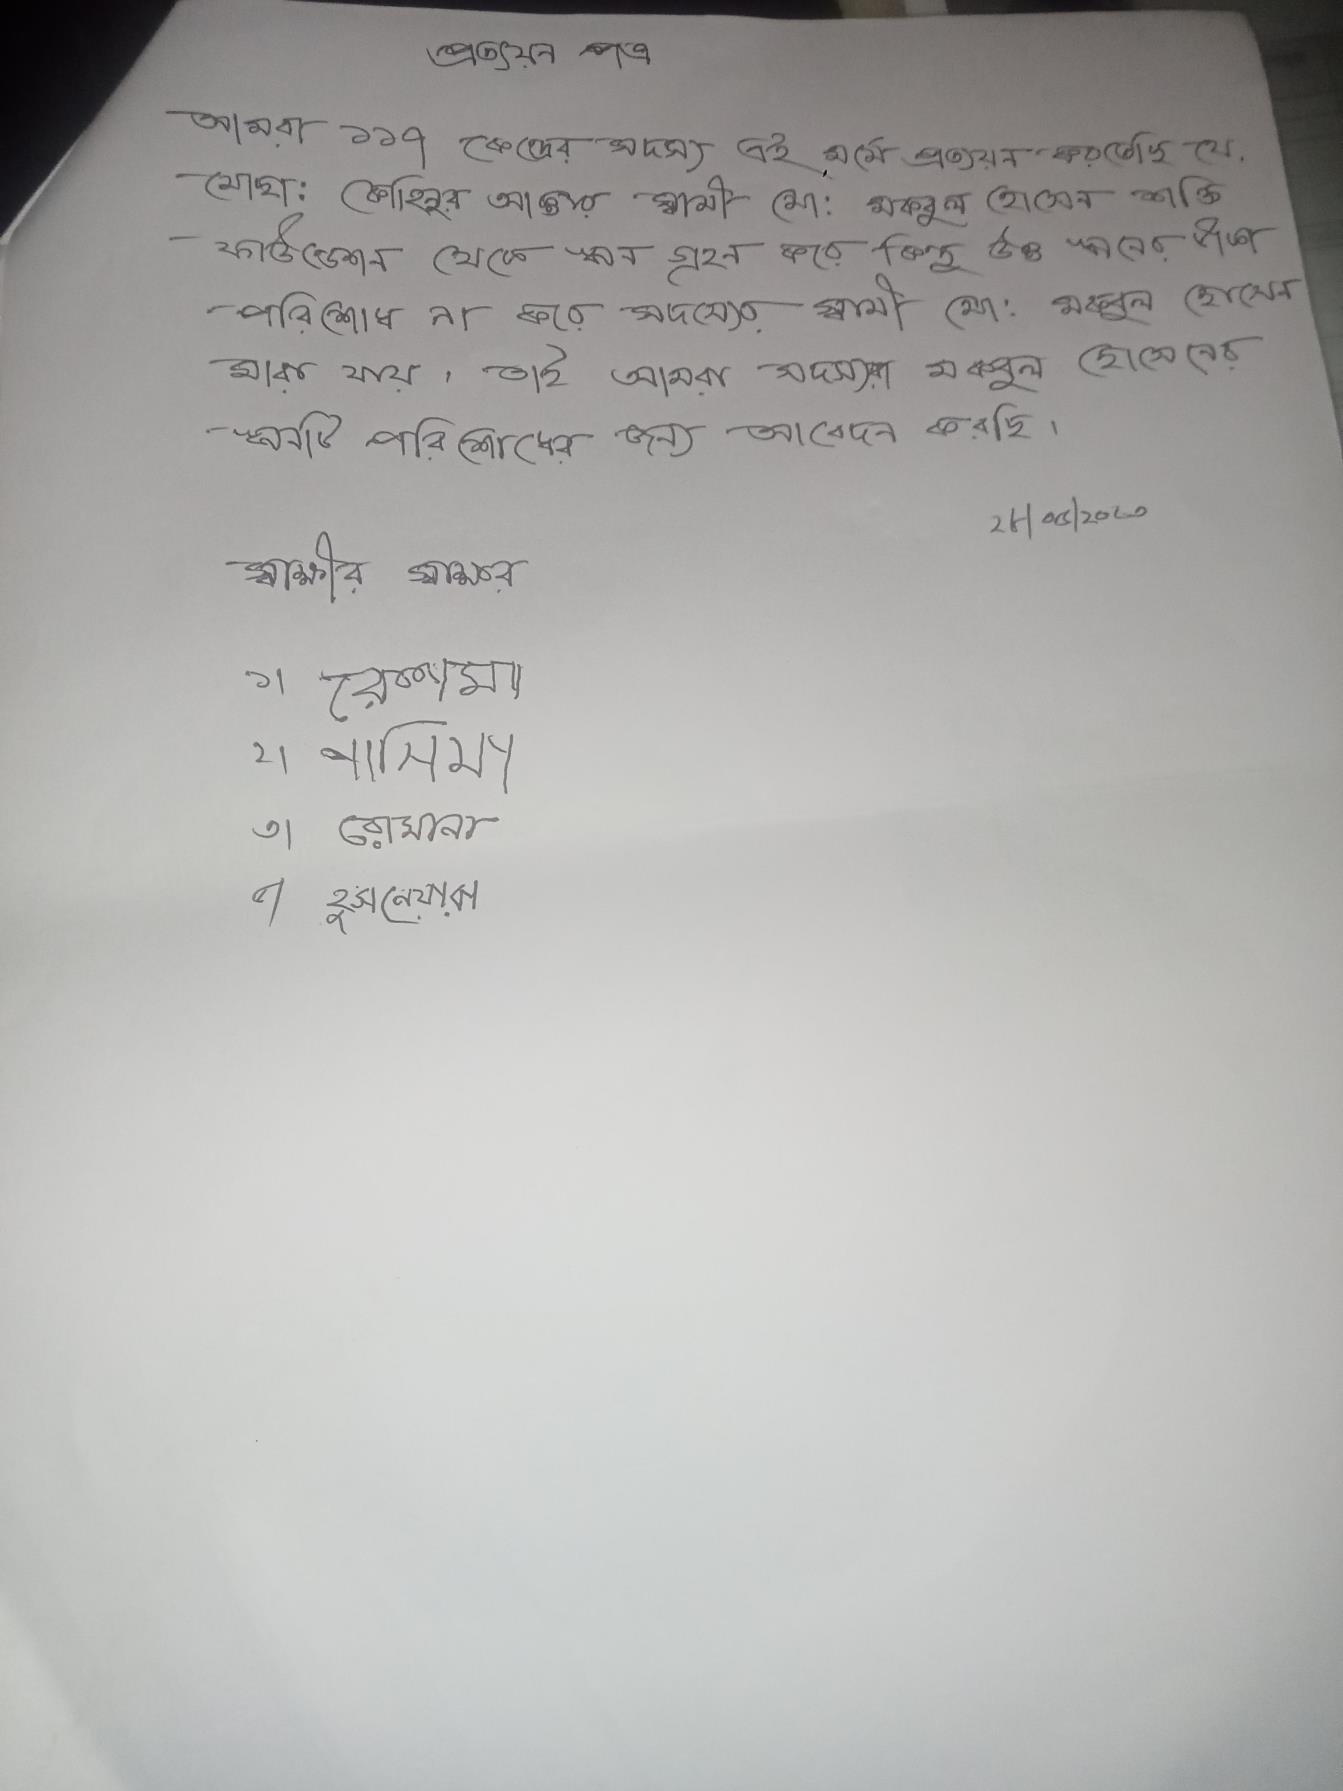 প্রত্যয়ন পত্র
আমরা ১১৭ কেন্দ্রের সদস্য এই মর্মে প্রত্যয়ন করতেছি যে,
মোছা: কোহিনুর আক্তার স্বামী মো: মকবুল হোসেন শক্তি
ফাউন্ডেশন থেকে ঋন গ্রহন করে কিন্তু উক্ত ঋনের
পরিশোধ না করে সদস্যের স্বামী মো: মকবুল হোসেন
মারা যায়। তাই আমরা সদস্যরা মকবুল হোসেনের
ঋনটি পরিশোধের জন্য আবেদন করছি।
স্বাক্ষীর স্বাক্ষর
১।
২।
৩। রোমানা
৪। হুসনেয়ারা